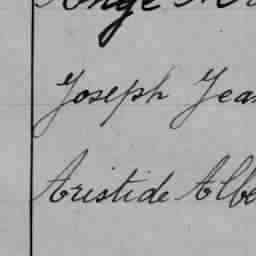 Ange
Joseph Jea
Aristide Albe